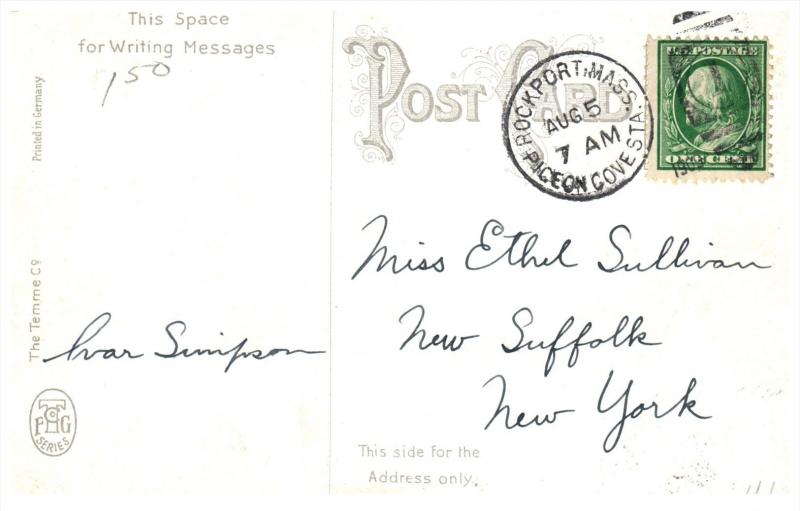 This Space
for Writing Messages
150
Printed in Germany
The Temme Co
TC
PFG
SERIES
Ivar Simpson
POST CARD
ROCKPORT, MASS.
AUG 5
7 AM
PIGEON COVE STA.
U.S. POSTAGE
ONE CENT
Miss Ethel Sullivan
New Suffolk
New York
This side for the
Address only.